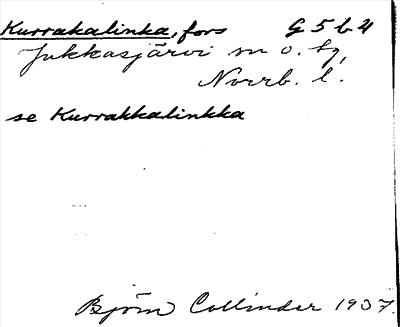 Kurrakalinka, fors G 5 b 4
Jukkasjärvi sn o. tg,
Norrb. l.
se Kurrakkalinkka
Björn Collinder 1937.